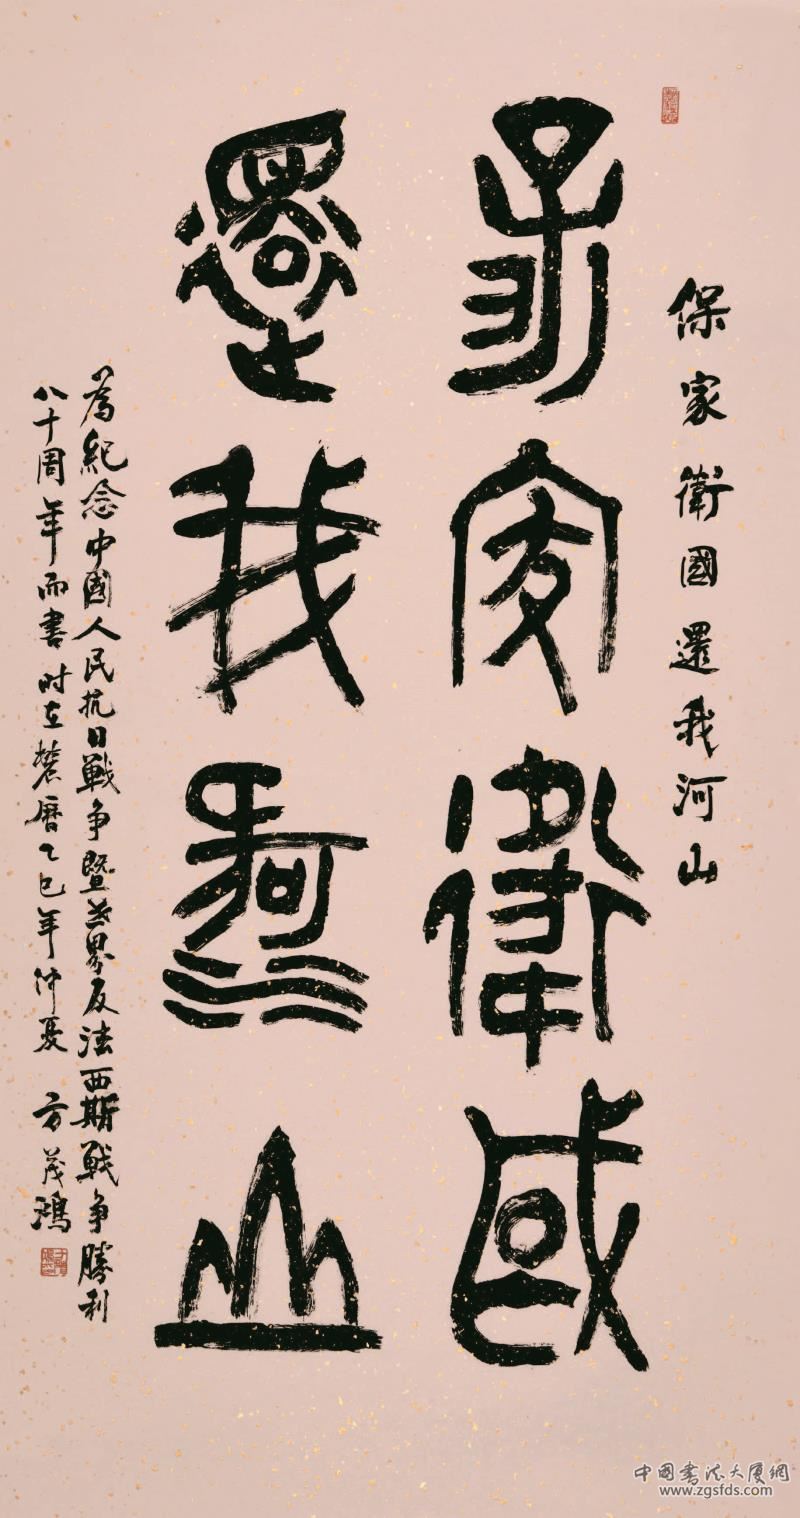 保家衛國還我河山
保家衛國
還我河山
為紀念中國人民抗日戰争暨世界反法西斯戰争勝利
八十周年而書时在農曆乙巳年仲夏 方茂鴻
中國書法大厦網
www.zgsfds.com